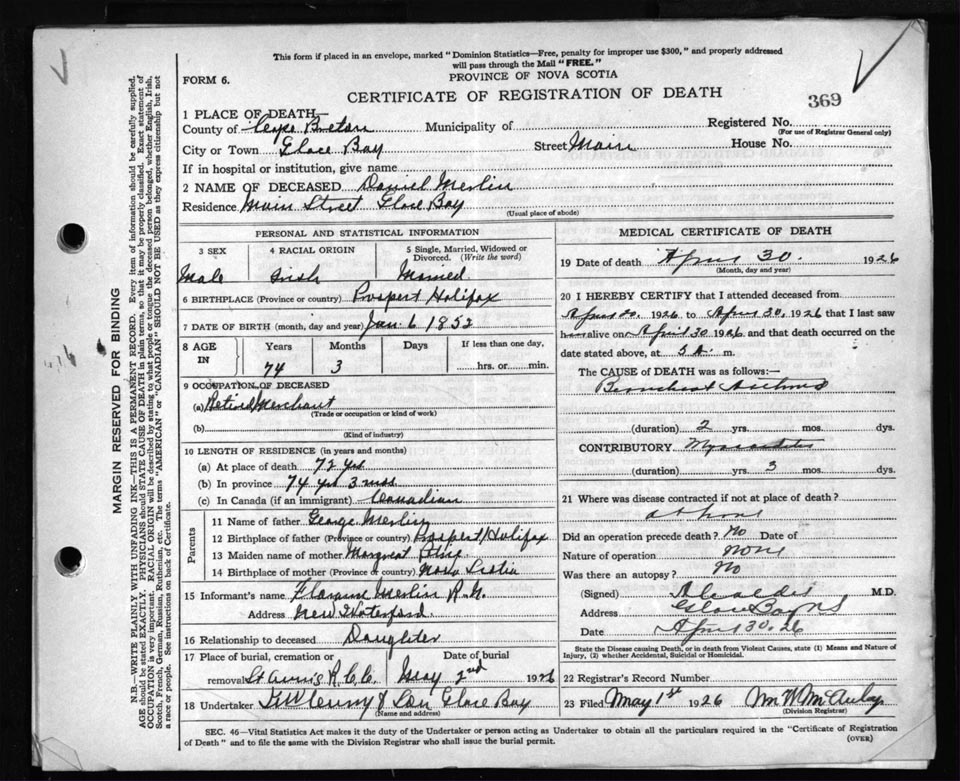 This form if placed in an envelope, marked "Dominion Statistics—Free, penalty for improper use $300," and properly addressed
will pass through the Mail "FREE."
FORM 6.
PROVINCE OF NOVA SCOTIA
CERTIFICATE OF REGISTRATION OF DEATH
369
1 PLACE OF DEATH—
County of Cape Breton Municipality of Registered No.
(For use of Registrar General only)
City or Town Glace Bay Street Main House No.
If in hospital or institution, give name
2 NAME OF DECEASED Daniel Merlin
Residence Main Street Glace Bay
(Usual place of abode)
PERSONAL AND STATISTICAL INFORMATION
3 SEX 4 RACIAL ORIGIN 5 Single, Married, Widowed or
Divorced. (Write the word)
Male Irish Married
6 BIRTHPLACE (Province or country) Prospect Halifax
7 DATE OF BIRTH (month, day and year) Jan. 6 1852
8 AGE IN Years Months Days If less than one day,
74 3 hrs. or min.
9 OCCUPATION OF DECEASED
(a) Retired Merchant
(Trade or occupation or kind of work)
(b)
(Kind of industry)
10 LENGTH OF RESIDENCE (in years and months)
(a) At place of death 72 yrs
(b) In province 74 yrs 3 mos
(c) In Canada (if an immigrant) Canadian
Parents
11 Name of father George Merlin
12 Birthplace of father (Province or country) Prospect Halifax
13 Maiden name of mother Margreat
14 Birthplace of mother (Province or country) Nova Scotia
15 Informant's name Merlin R.N.
Address New Waterford
16 Relationship to deceased Daughter
17 Place of burial, cremation or Date of burial
removal St Anns R.C.C. May 2nd 1926
18 Undertaker & Son Glace Bay
(Name and address)
MEDICAL CERTIFICATE OF DEATH
19 Date of death April 30. 1926
(Month, day and year)
20 I HEREBY CERTIFY that I attended deceased from
April 1926 to April 30, 1926 that I last saw
him alive on April 30 1926, and that death occurred on the
date stated above, at m.
The CAUSE of DEATH was as follows:—
Bronchial Asthma
(duration) 2 yrs. mos. dys.
CONTRIBUTORY Myocarditis
(duration) yrs. 3 mos. dys.
21 Where was disease contracted if not at place of death?
at home
Did an operation precede death? No Date of
Nature of operation None
Was there an autopsy? No
(Signed) M.D.
Address Glace Bay NS
Date April 30. 26
State the Disease causing Death, or in death from Violent Causes, state (1) Means and Nature of
Injury, (2) whether Accidental, Suicidal or Homicidal.
22 Registrar's Record Number
23 Filed May 1st 1926 Wm McAulay
(Division Registrar)
SEC. 46—Vital Statistics Act makes it the duty of the Undertaker or person acting as Undertaker to obtain all the particulars required in the "Certificate of Registration
of Death" and to file the same with the Division Registrar who shall issue the burial permit.
(OVER)
MARGIN RESERVED FOR BINDING
N.B.—WRITE PLAINLY WITH UNFADING INK—THIS IS A PERMANENT RECORD. Every item of information should be carefully supplied.
AGE should be stated EXACTLY. PHYSICIANS should STATE CAUSE OF DEATH in plain terms, so that it may be properly classified. Exact statement of
OCCUPATION is very important. RACIAL ORIGIN will be described by stating to what people or tongue the deceased person belonged, whether English, Irish,
Scotch, French, German, Russian, Ruthenian, etc. The terms "AMERICAN" or "CANADIAN" SHOULD NOT BE USED as they express citizenship but not
a race or people. See instructions on back of Certificate.